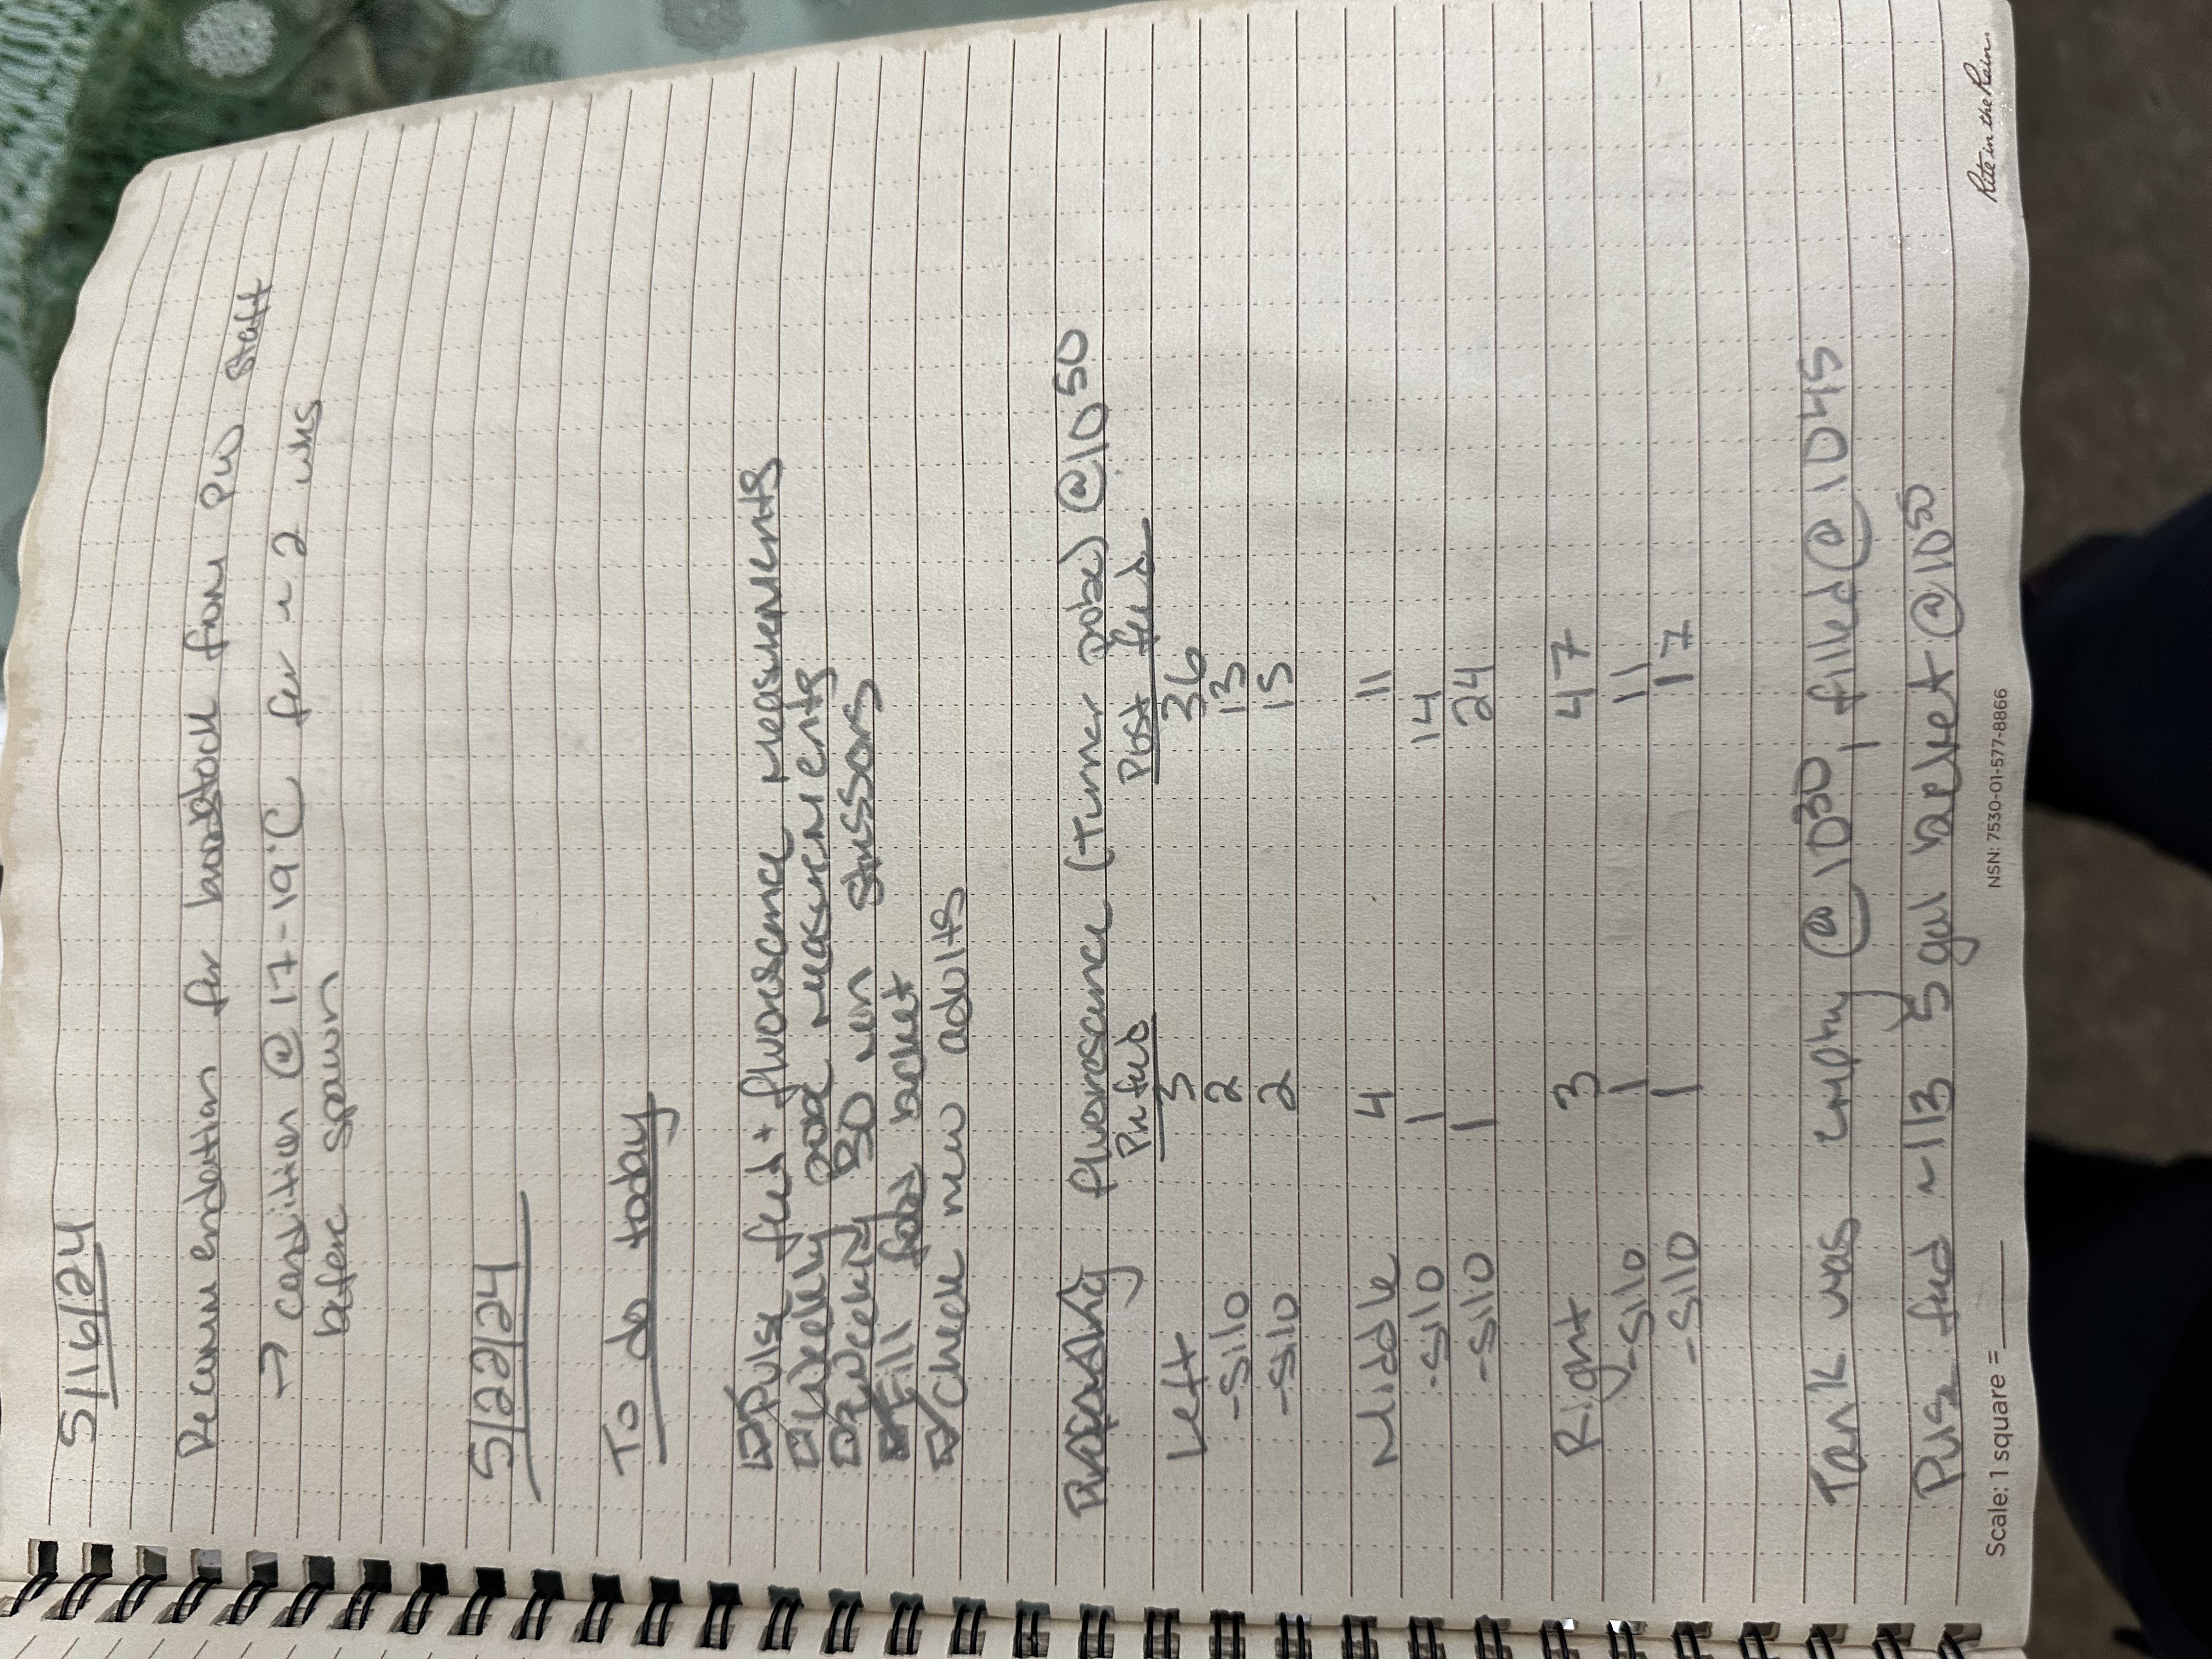 5/16/24
Recommendation for broodstock from PW staff
→ condition @ 17-19°C for ~ 2 wks
before spawn
5/22/24
To do today
Pulse feed + fluorescence measurements
Weekly probe measurements
Weekly 30 min stressors
Fill food bucket
Check new adults
fluorescence (Turner probe) @ 10 50
Pre feed Post feed
Left 3 36
-silo 2 13
-silo 2 15
Middle 4 11
-silo 1 14
-silo 1 24
Right 3 47
-silo 1 11
-silo 1 17
Tank was empty @ 10 30, filled @ 1045
Pulse feed ~1/3 5 gal bucket @ 10 55
Scale: 1 square =
NSN: 7530-01-577-8866
Rite in the Rain.